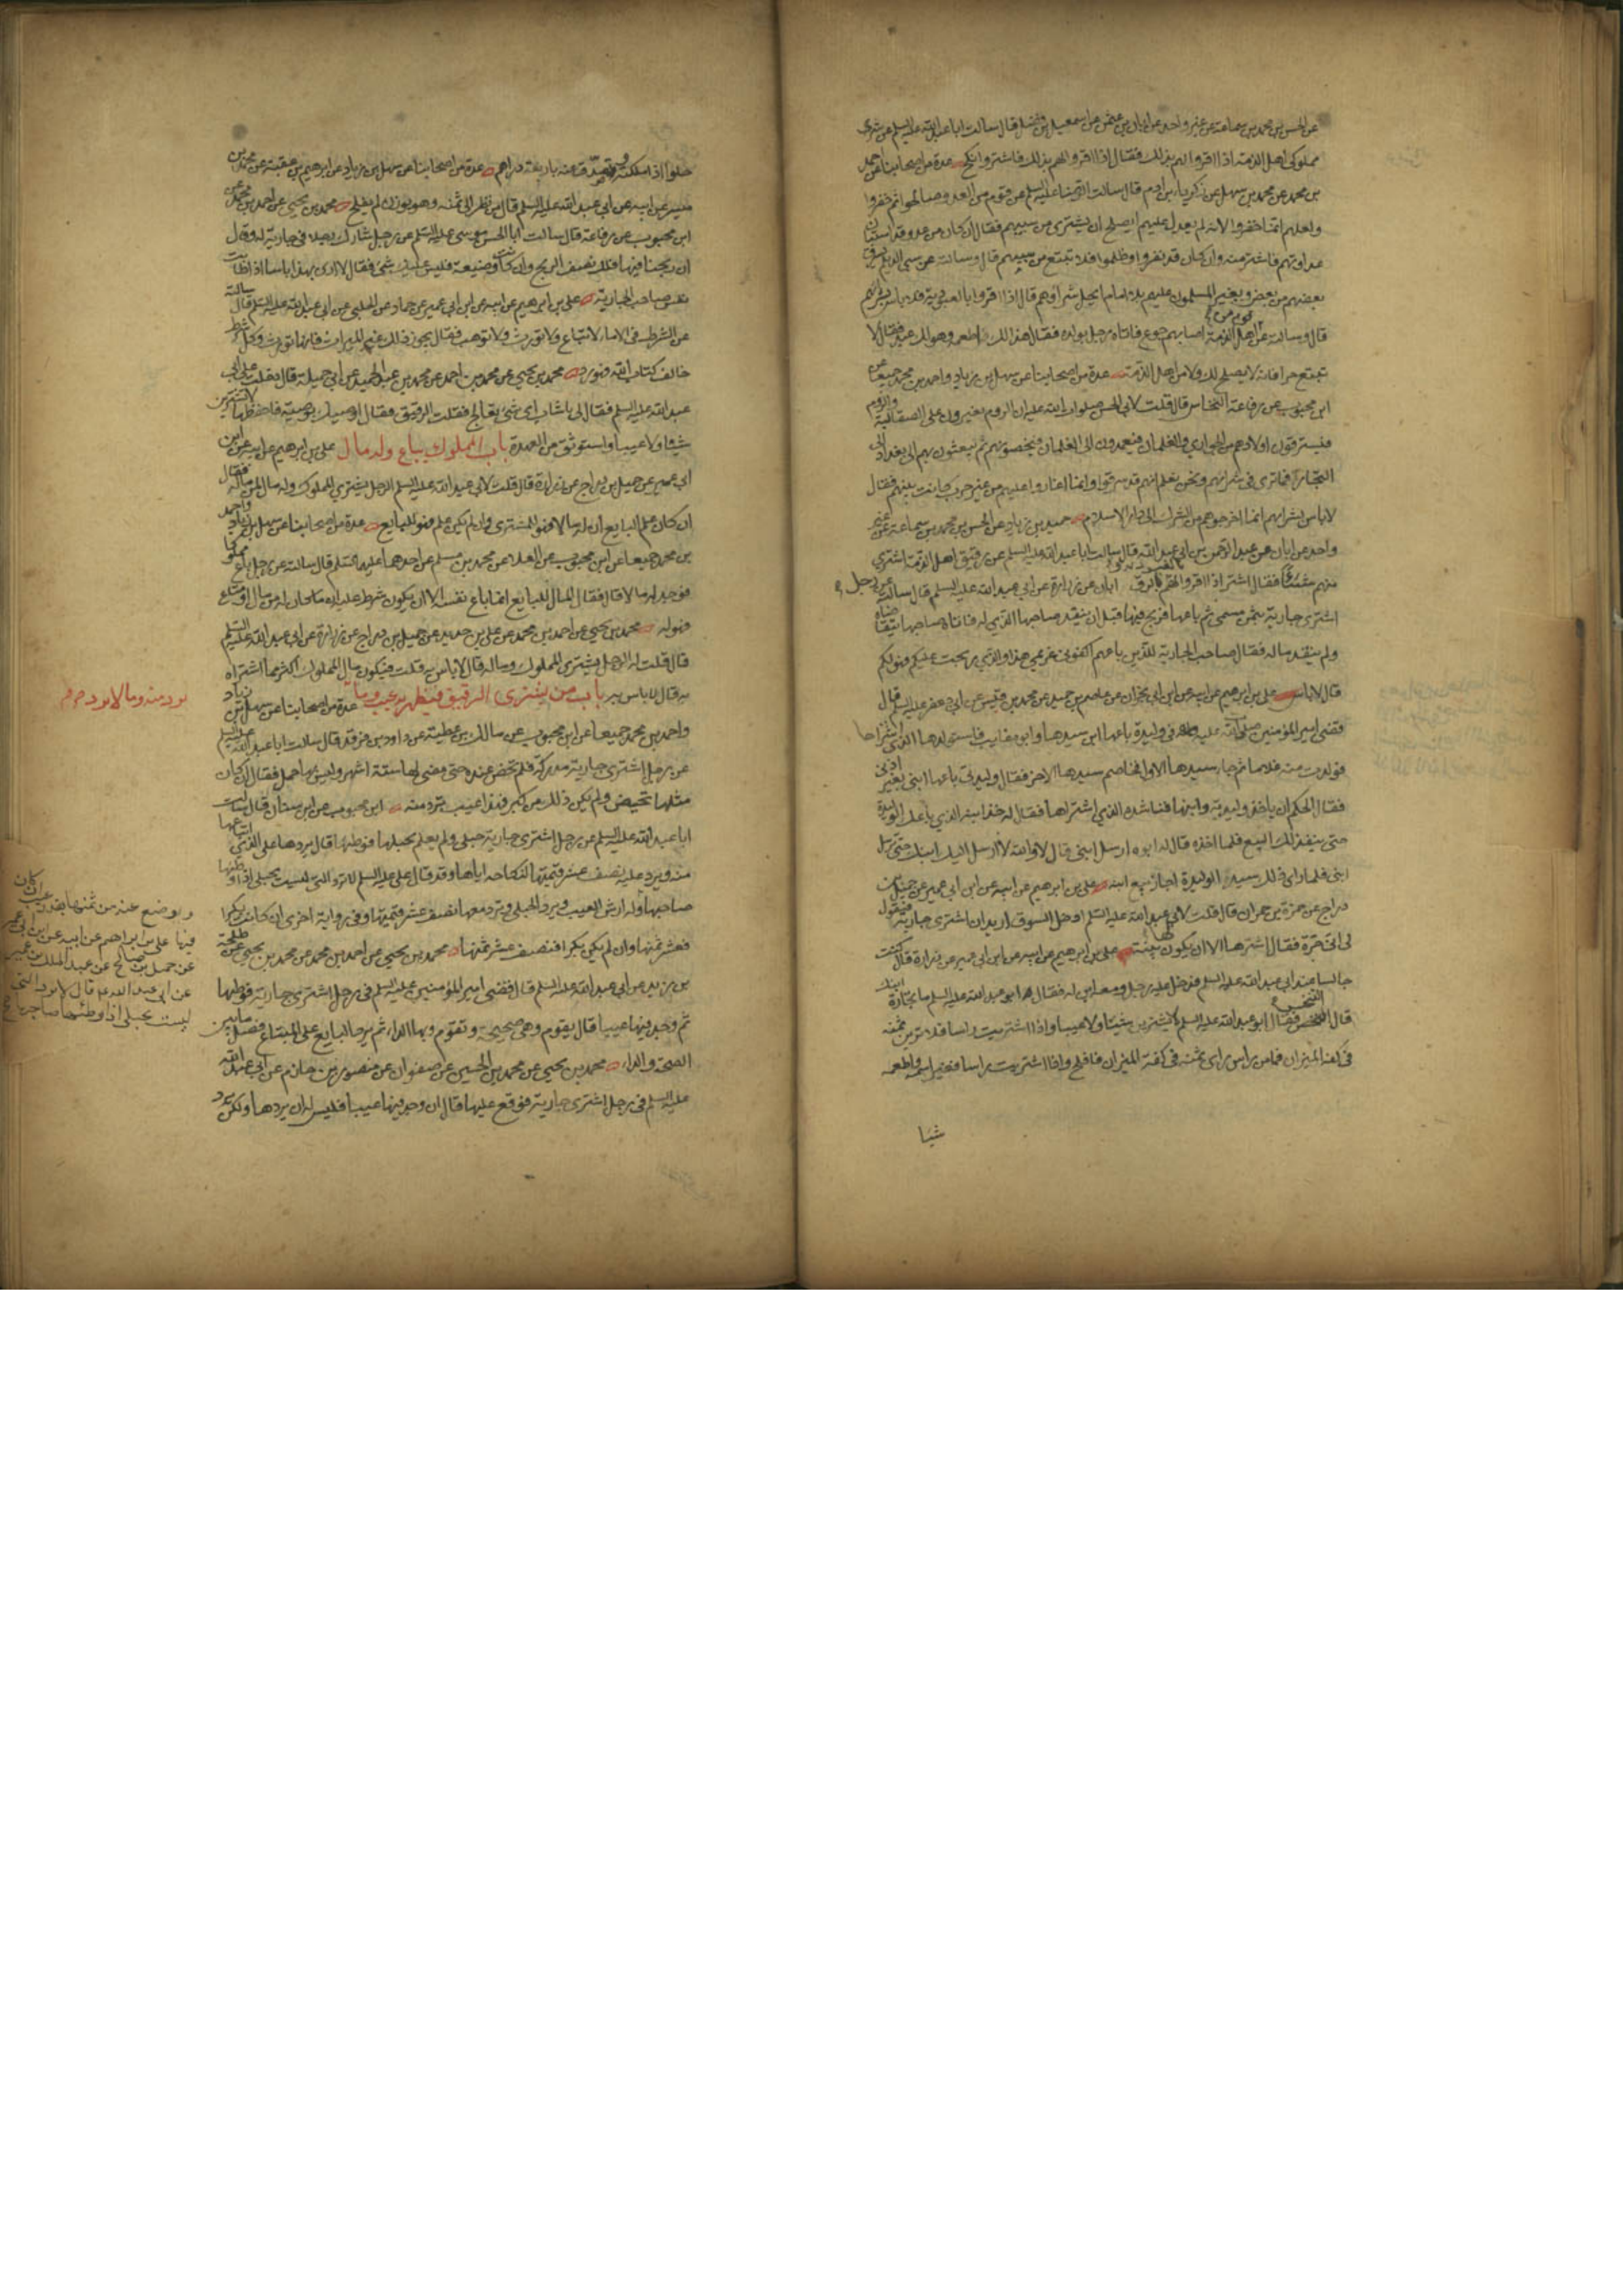 عن الحسن بن محمد بن سماعة عن غير واحد عن ابان بن عثمن عن اسمعيل بن الفضل قال سالت ابا عبد الله عليه السلم عن شرى
مملوكى اهل الذمة اذا اقروا لهم بذلك فقال اذا اقروا لهم بذلك فاشتر وانكح عدة من اصحابنا عن احمد
بن محمد عن محمد بن سهل عن زكريا بن ادم قال سالت الرضا عليه السلم عن قوم من العدو صالحوا ثم خفروا
ولعلهم انما خفروا لانه لم يعدل عليهم ايصلح ان يشترى من سبيهم فقال ان كان من عدو قد استبان
عداوتهم فاشتر منه وان كان قد نفروا وظلموا فلا تبتع من سبيهم قال وسالت عن سبى الديلم يسرق
بعضهم من بعض ويغير المسلمون عليهم بلا امام ايحل شراؤهم قال اذا اقروا بالعبودية فلا باس بشرائهم
قال وسالت عن قوم من اهل الذمة اصابهم جوع فاتاه رجل بولده فقال هذا لك اطعمه وهو لك عبد فقال لا
تبتع حرا فانه لا يصلح لك ولا من اهل الذمة عدة من اصحابنا عن سهل بن زياد واحمد بن محمد جميعا عن
ابن محبوب عن رفاعة النخاس قال قلت لابى الحسن صلوات الله عليه ان الروم يغيرون على الصقالبة والروم
فيسترقون اولادهم من الجوارى والغلمان فيعمدون الى الغلمان فيخصونهم ثم يبعثون بهم الى بغداد الى
التجار فما ترى فى شرائهم ونحن نعلم انهم قد سرقوا وانما اغاروا عليهم من غير حرب كانت بينهم فقال
لا باس بشرائهم انما اخرجوهم من الشرك الى دار الاسلام حميد بن زياد عن الحسن بن محمد بن سماعة عن غير
واحد عن ابان عن عبد الرحمن بن ابى عبد الله قال سالت ابا عبد الله عليه السلم عن رقيق اهل الذمة اشترى
منهم شيئا فقال اشتر اذا اقروا لهم بالرق ابان عن زرارة عن ابى عبد الله عليه السلم قال سالته عن رجل
اشترى جارية بثمن مسمى ثم باعها فربح فيها قبل ان ينقد صاحبها الذى له فاتاه صاحبها يتقاضاه
ولم ينقد ماله فقال صاحب الجارية للذين باعهم اكفونى غريمى هذا والذى ربحت عليكم فهو لكم
قال لا باس على بن ابرهيم عن ابيه عن ابن ابى نجران عن عاصم بن حميد عن محمد بن قيس عن ابى جعفر عليه السلم قال
قضى امير المؤمنين صلوات الله عليه فى وليدة باعها ابن سيدها وابوه غايب فاستولدها الذى اشتراها
فولدت منه غلاما ثم جاء سيدها الاول فخاصم سيدها الاخر فقال وليدتى باعها ابنى بغير اذنى
فقال الحكم ان ياخذ وليدته وابنها فناشده الذى اشتراها فقال له خذ ابنه الذى باعك الوليدة
حتى ينفذ لك البيع فلما اخذه قال له ابوه ارسل ابنى قال لا والله لا ارسل اليك ابنك حتى ترسل
ابنى فلما راى ذلك سيد الوليدة اجاز بيع ابنه على بن ابرهيم عن ابيه عن ابن ابى عمير عن جميل بن
دراج عن حمزة بن حمران قال قلت لابى عبد الله عليه السلم ادخل السوق اريد ان اشترى جارية فتقول
لى انى حرة فقال اشترها الا ان يكون لها بينة على بن ابرهيم عن ابيه عن ابن ابى عمير عن زرارة قال كنت
جالسا عند ابى عبد الله عليه السلم فدخل عليه رجل ومعه ابن له فقال له ابو عبد الله عليه السلم ما تجارة ابنك
قال النخس فقال ابو عبد الله عليه السلم لا تشترين شينا ولا عيبا واذا اشتريت راسا فلا ترين ثمنه
فى كفة الميزان فما من راس راى ثمنه فى كفة الميزان فافلح واذا اشتريت راسا فغير اسمه واطعمه
شيئا
حلوا اذا ملكته وتصدق عنه باربعة دراهم عدة من اصحابنا عن سهل بن زياد عن ابرهيم بن عقبة عن محمد بن
ميسر عن ابيه عن ابى عبد الله عليه السلم قال من نظر الى ثمنه وهو يوزن لم يفلح محمد بن يحيى عن احمد بن محمد عن
ابن محبوب عن رفاعة قال سالت ابا الحسن موسى عليه السلم عن رجل شارك رجلا فى جارية له وقال
ان ربحنا فيها فلك نصف الربح وان كانت وضيعة فليس عليك شئ فقال لا ارى بهذا باسا اذا طابت
نفس صاحب الجارية على بن ابرهيم عن ابيه عن ابن ابى عمير عن حماد عن الحلبى عن ابى عبد الله عليه السلم قال سالته
عن الشرط فى الاماء لا تباع ولا تورث ولا توهب فقال يجوز ذلك غير الميراث فانها تورث وكل شرط
خالف كتاب الله فهو رد محمد بن يحيى عن محمد بن احمد عن محمد بن عبد الحميد عن ابى جميلة قال دخلت على ابى
عبد الله عليه السلم فقال لى يا شاب اى شئ تعالج فقلت الرقيق فقال اوصيك بوصية فاحفظها لا تشترين
شينا ولا عيبا واستوثق من العهدة باب المملوك يباع وله مال على بن ابرهيم عن ابيه عن ابن
ابى عمير عن جميل بن دراج عن زرارة قال قلت لابى عبد الله عليه السلم الرجل يشترى المملوك وله مال لمن ماله فقال
ان كان علم البايع ان له مالا فهو للمشترى وان لم يكن علم فهو للبايع عدة من اصحابنا عن سهل بن زياد واحمد
بن محمد جميعا عن ابن محبوب عن العلا عن محمد بن مسلم عن احدهما عليهما السلم قال سالته عن رجل باع مملوكا
فوجد له مالا قال فقال المال للبايع انما باع نفسه الا ان يكون شرط عليه ان ما كان له من مال او متاع
فهو له محمد بن يحيى عن احمد بن محمد عن على بن حديد عن جميل بن دراج عن زرارة عن ابى عبد الله عليه السلم
قال قلت له الرجل يشترى المملوك وماله قال لا باس به قلت فيكون مال المملوك اكثر مما اشتراه
به قال لا باس به باب من يشترى الرقيق فيظهر به عيب وما عدة من اصحابنا عن سهل بن زياد
يرد منه وما لا يرد
واحمد بن محمد جميعا عن ابن محبوب عن مالك بن عطية عن داود بن فرقد قال سالت ابا عبد الله عليه السلم
عن رجل اشترى جارية مدركة فلم تحض عنده حتى مضى لها ستة اشهر وليس بها حمل فقال ان كان
مثلها تحيض ولم يكن ذلك من كبر فهذا عيب ترد منه ابن محبوب عن ابن سنان قال سالت
ابا عبد الله عليه السلم عن رجل اشترى جارية حبلى ولم يعلم بحبلها فوطئها قال يردها على الذى ابتاعها
منه ويرد عليه نصف عشر قيمتها لنكاحه اياها وقد قال على عليه السلم لا ترد التى ليست بحبلى اذا وطئها
صاحبها وله ارش العيب ويرد الحبلى وترد معها نصف عشر قيمتها وفى رواية اخرى ان كانت بكرا
فعشر ثمنها وان لم يكن بكرا فنصف عشر ثمنها محمد بن يحيى عن احمد بن محمد عن محمد بن يحيى عن طلحة
بن زيد عن ابى عبد الله عليه السلم قال قضى امير المؤمنين عليه السلم فى رجل اشترى جارية فوطئها
ثم وجد فيها عيبا قال يقوم وهى صحيحة وتقوم وبها الداء ثم يرد البايع على المبتاع فضل ما بين
الصحة والداء محمد بن يحيى عن محمد بن الحسين عن صفوان عن منصور بن حازم عن ابى عبد الله
عليه السلم فى رجل اشترى جارية فوقع عليها قال ان وجد فيها عيبا فليس له ان يردها ولكن يرد
ويوضع عنه من ثمنها بقدر عيب ان كان
فيها على بن ابراهيم عن ابيه عن ابن ابى عمير
عن جميل بن صالح عن عبد الملك بن عمير
عن ابى عبد الله ع قال لا ترد التى
ليست بحبلى اذا وطئها صاحبها